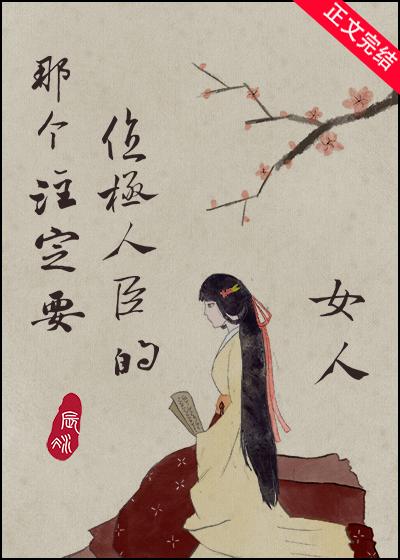 正文完结
那个注定要
位極人臣的
女人
辰冰